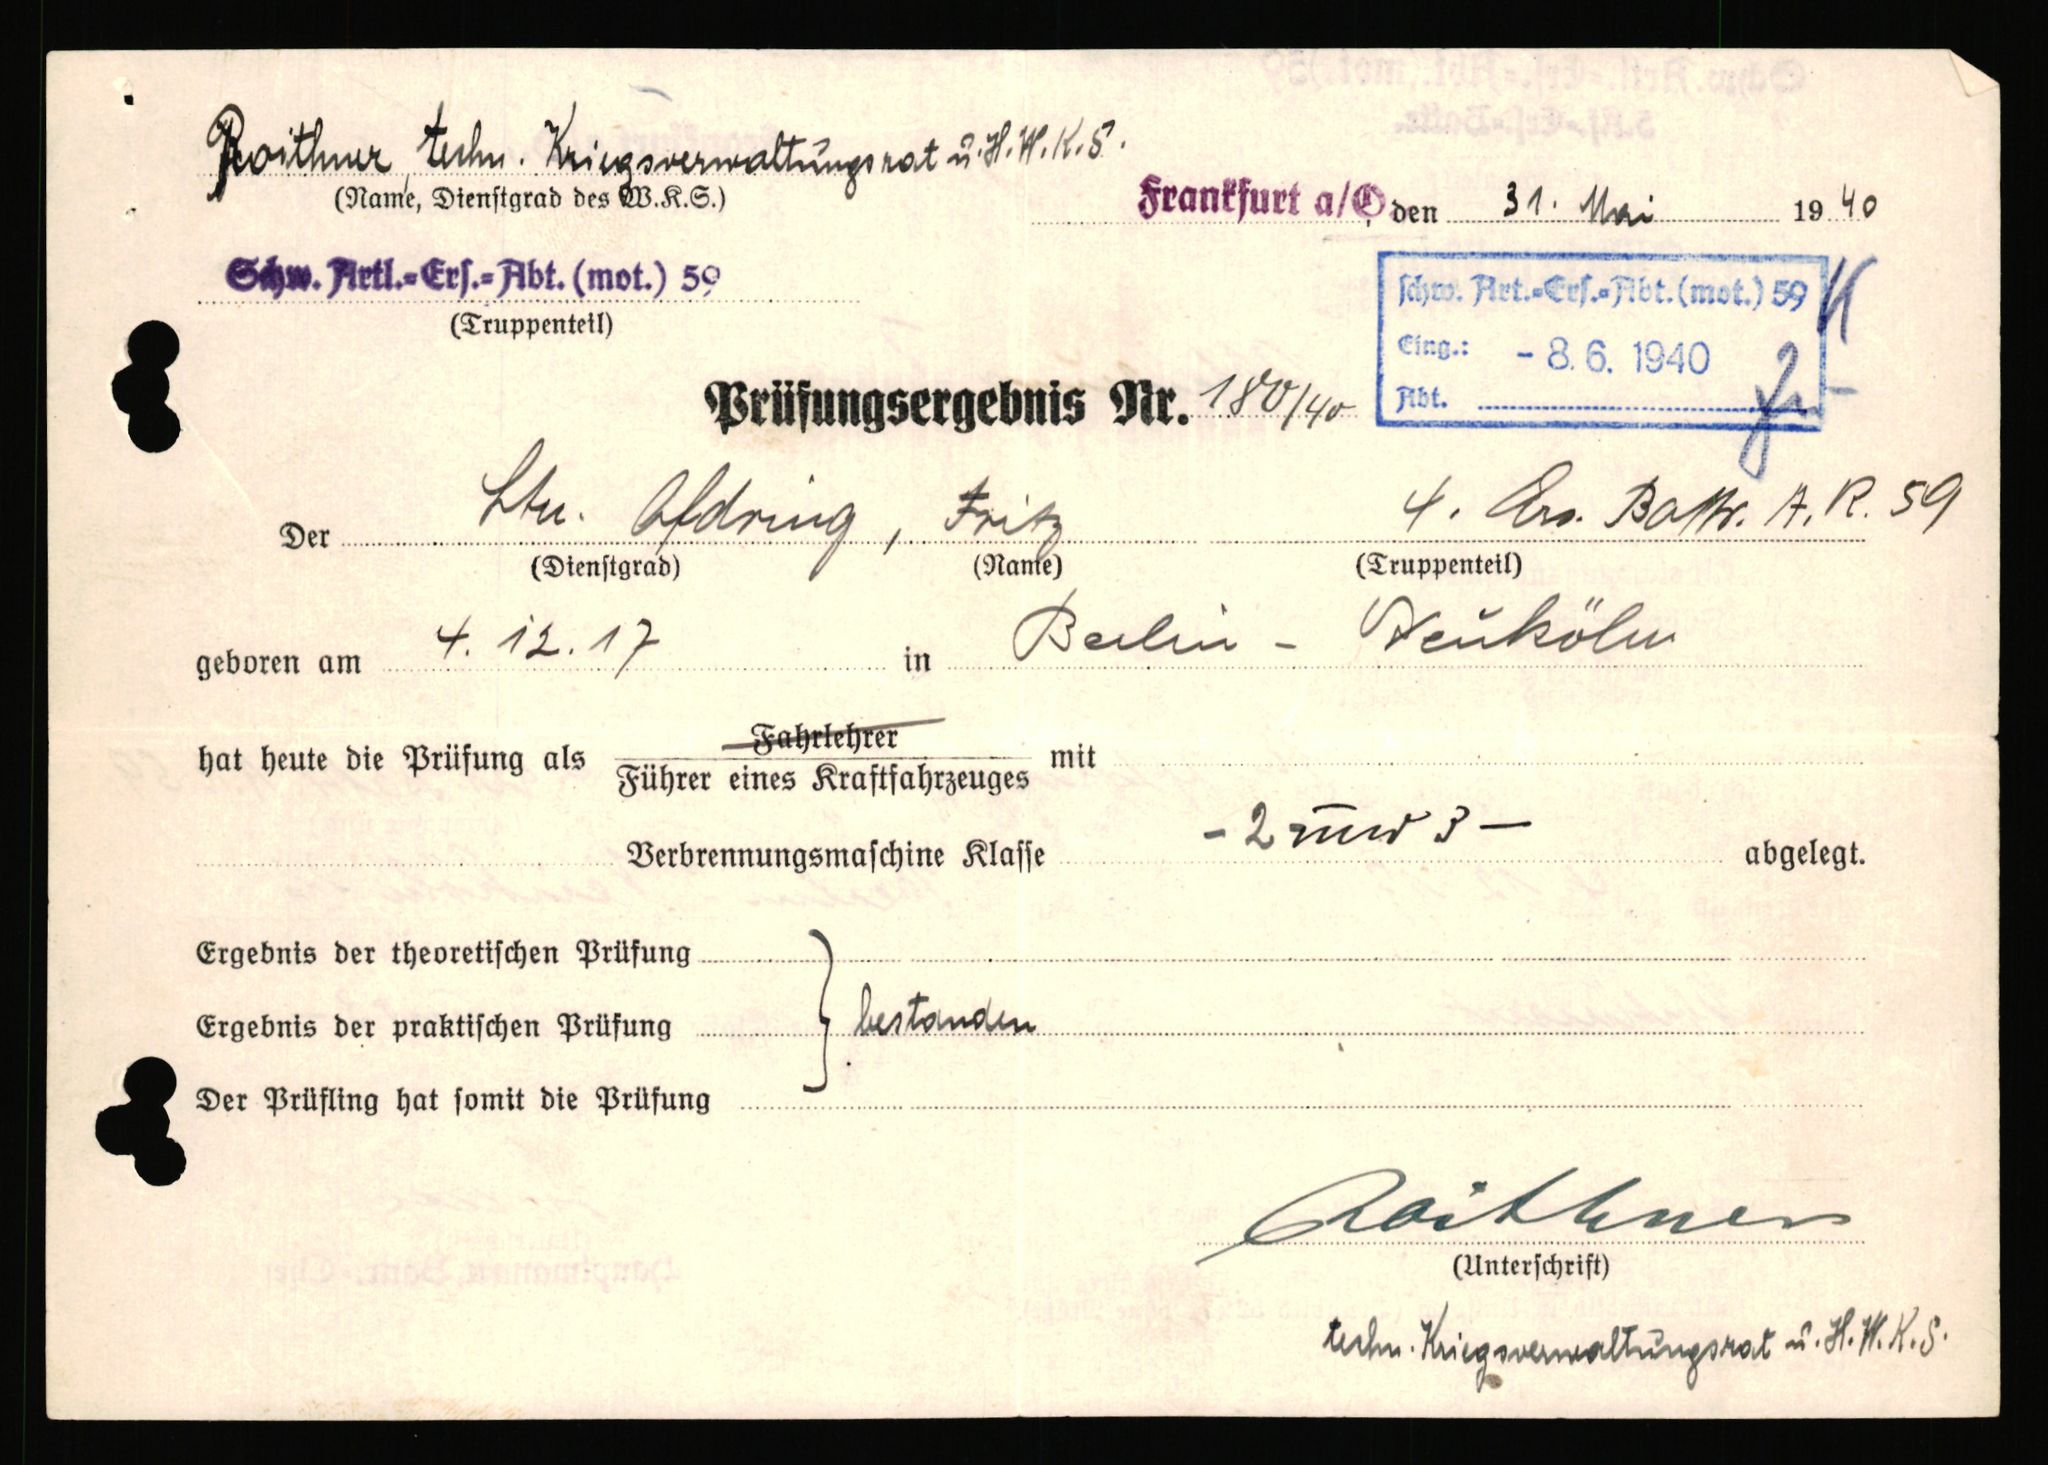 Roithner, techn. Kriegsverwaltungsrat u. H.W.K.S.
(Name, Dienstgrad des W.K.S.)
Frankfurt a/O, den 31. Mai 1940
Schw. Artl.=Ers.=Abt. (mot.) 59
(Truppenteil)
schw. Art.=Ers.=Abt. (mot.) 59
Eing.: - 8. 6. 1940
Abt.
Prüfungsergebnis Nr. 180/40
Der Ltn. Ofdring, Fritz 4. Ers. Battr. A. R. 59
(Dienstgrad) (Name) (Truppenteil)
geboren am 4. 12. 17 in Berlin - Neukölln
hat heute die Prüfung als Fahrlehrer
Führer eines Kraftfahrzeuges mit
Verbrennungsmaschine Klasse - 2 und 3 - abgelegt.
Ergebnis der theoretischen Prüfung
Ergebnis der praktischen Prüfung } bestanden
Der Prüfling hat somit die Prüfung
Roithner
(Unterschrift)
techn. Kriegsverwaltungsrat u. H.W.K.S.